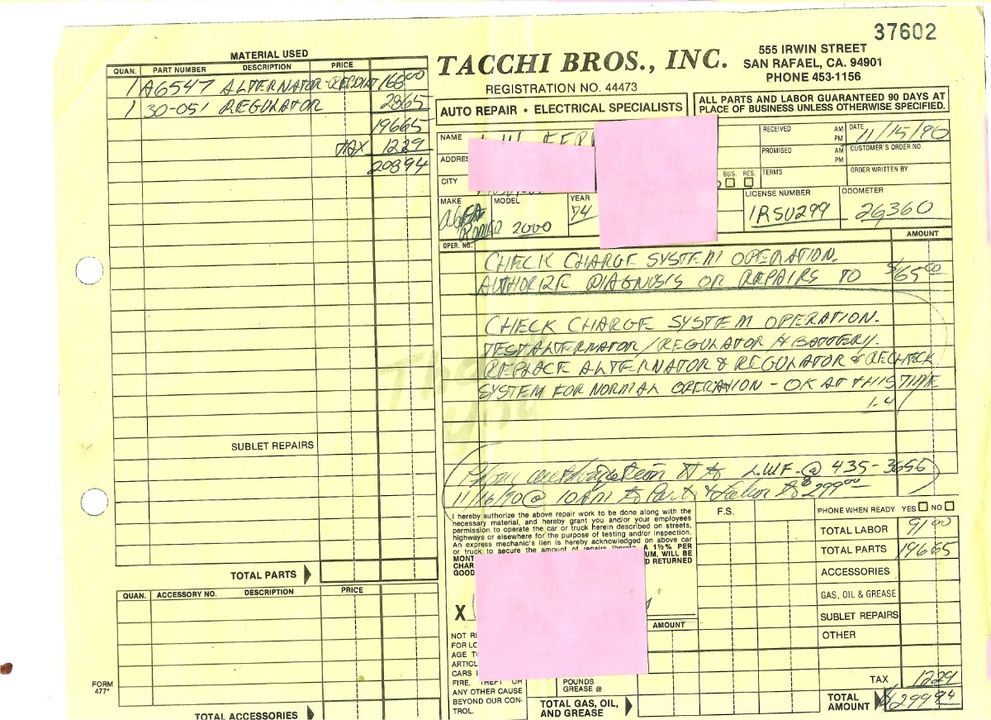 37602
MATERIAL USED
QUAN. PART NUMBER DESCRIPTION PRICE
1 A6547 ALTERNATOR- 168 00
1 30-051 REGULATOR 28 65
196 65
TAX 12 29
208 94
SUBLET REPAIRS
TOTAL PARTS
QUAN. ACCESSORY NO. DESCRIPTION PRICE
FORM 477*
TOTAL ACCESSORIES
TACCHI BROS., INC.
REGISTRATION NO. 44473
555 IRWIN STREET
SAN RAFAEL, CA. 94901
PHONE 453-1156
AUTO REPAIR • ELECTRICAL SPECIALISTS
ALL PARTS AND LABOR GUARANTEED 90 DAYS AT
PLACE OF BUSINESS UNLESS OTHERWISE SPECIFIED.
NAME
RECEIVED AM PM
DATE 11/15/90
PROMISED AM PM
CUSTOMER'S ORDER NO
BUS. RES.
TERMS
ORDER WRITTEN BY
CITY
MAKE ALFA ROMEO
MODEL 2000
YEAR 74
LICENSE NUMBER 1RSU299
ODOMETER 26360
OPER. NO.
AMOUNT
CHECK CHARGE SYSTEM OPERATION.
AUTHORIZE DIAGNOSIS OR REPAIRS TO $165 00
CHECK CHARGE SYSTEM OPERATION.
TEST ALTERNATOR/REGULATOR & BATTERY.
REPLACE ALTERNATOR & REGULATOR & RECHECK
SYSTEM FOR NORMAL OPERATION - OK AT THIS TIME
1.4
Thank You
Phon authorization to L.W.F. @ 435-3656
11/16/90 @ 10 AM to Part & Labor to $299 00
I hereby authorize the above repair work to be done along with the
necessary material, and hereby grant you and/or your employees
permission to operate the car or truck herein described on streets,
highways or elsewhere for the purpose of testing and/or inspection.
An express mechanic's lien is hereby acknowledged on above car
or truck to secure the amount of repairs thereto.
A 1½% PER
WILL BE
RETURNED
X
FIRE, THEFT OR
ANY OTHER CAUSE
BEYOND OUR CON-
TROL.
F.S.
AMOUNT
POUNDS
GREASE @
TOTAL GAS, OIL,
AND GREASE
PHONE WHEN READY YES NO
TOTAL LABOR 91 00
TOTAL PARTS 196 65
ACCESSORIES
GAS, OIL & GREASE
SUBLET REPAIRS
OTHER
TAX 12 29
TOTAL AMOUNT $299 94